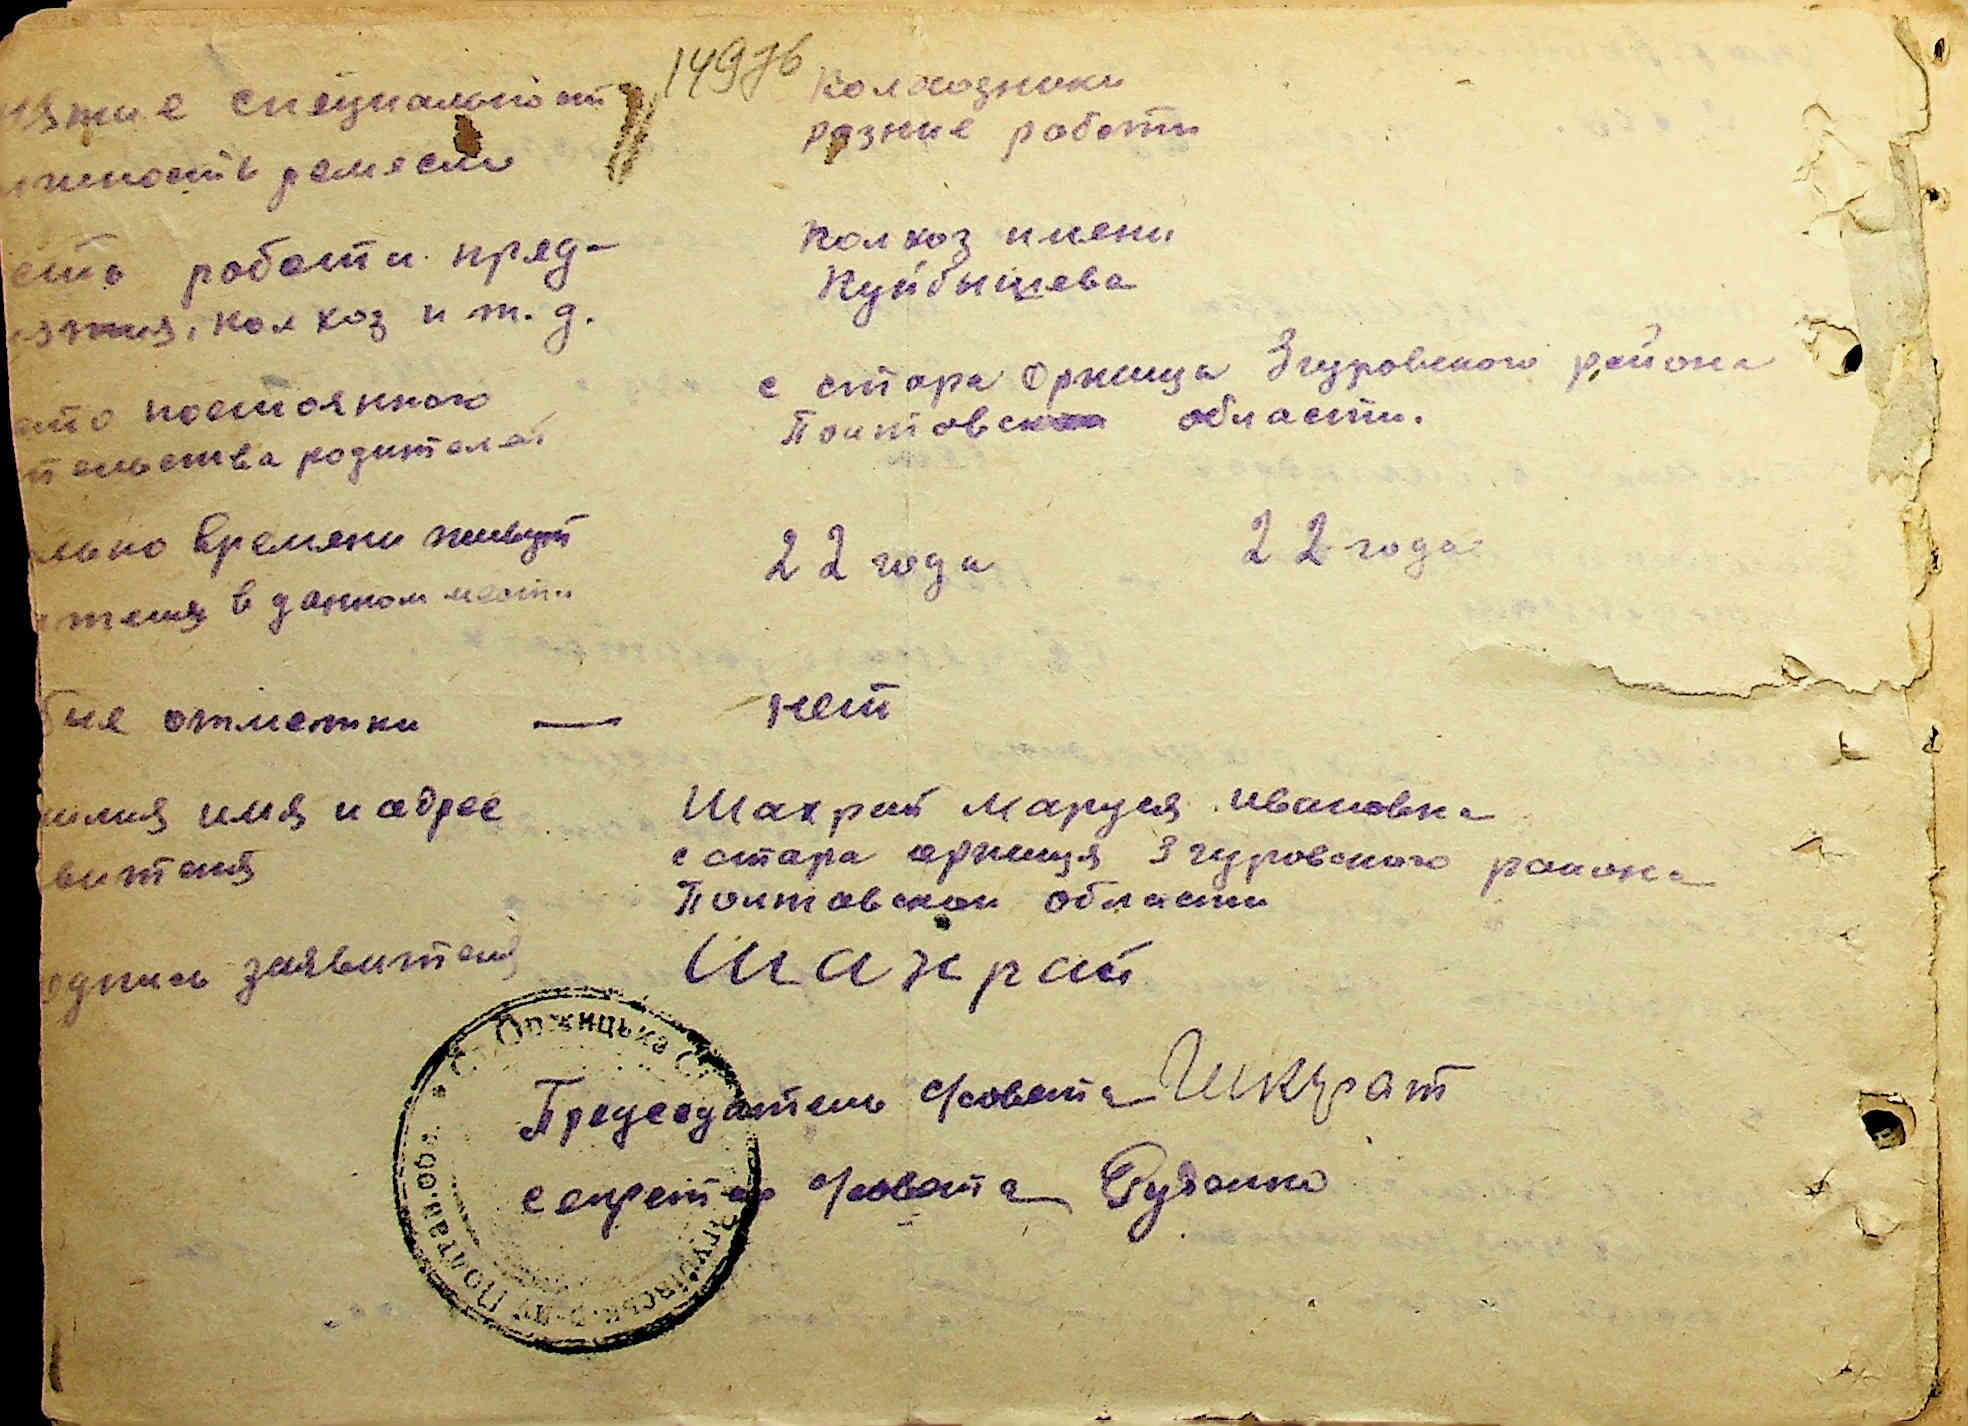 149 76
нятие специальност Колхозники
жность ремесло разние работи
есто работи пред- Колхоз имени
иятия, колхоз и т. д. Куйбышева
есто постоянного с стара Оржица Згуровского района
тельства родителей Полтовской области.
олько времени живут 22 года 22 года
ителя в данном месте
бие отметки — нет
милия имя и адрес Шахрай Маруся Ивановна
вителя с стара оржиця Згуровского района
Полтавской области
одпись заявителя Шахрай
Председатель с/совета Шкурат
секретар с/совета Руденко
Ст. Оржицька С
Згурівськ. р-ну Полтав. обл.